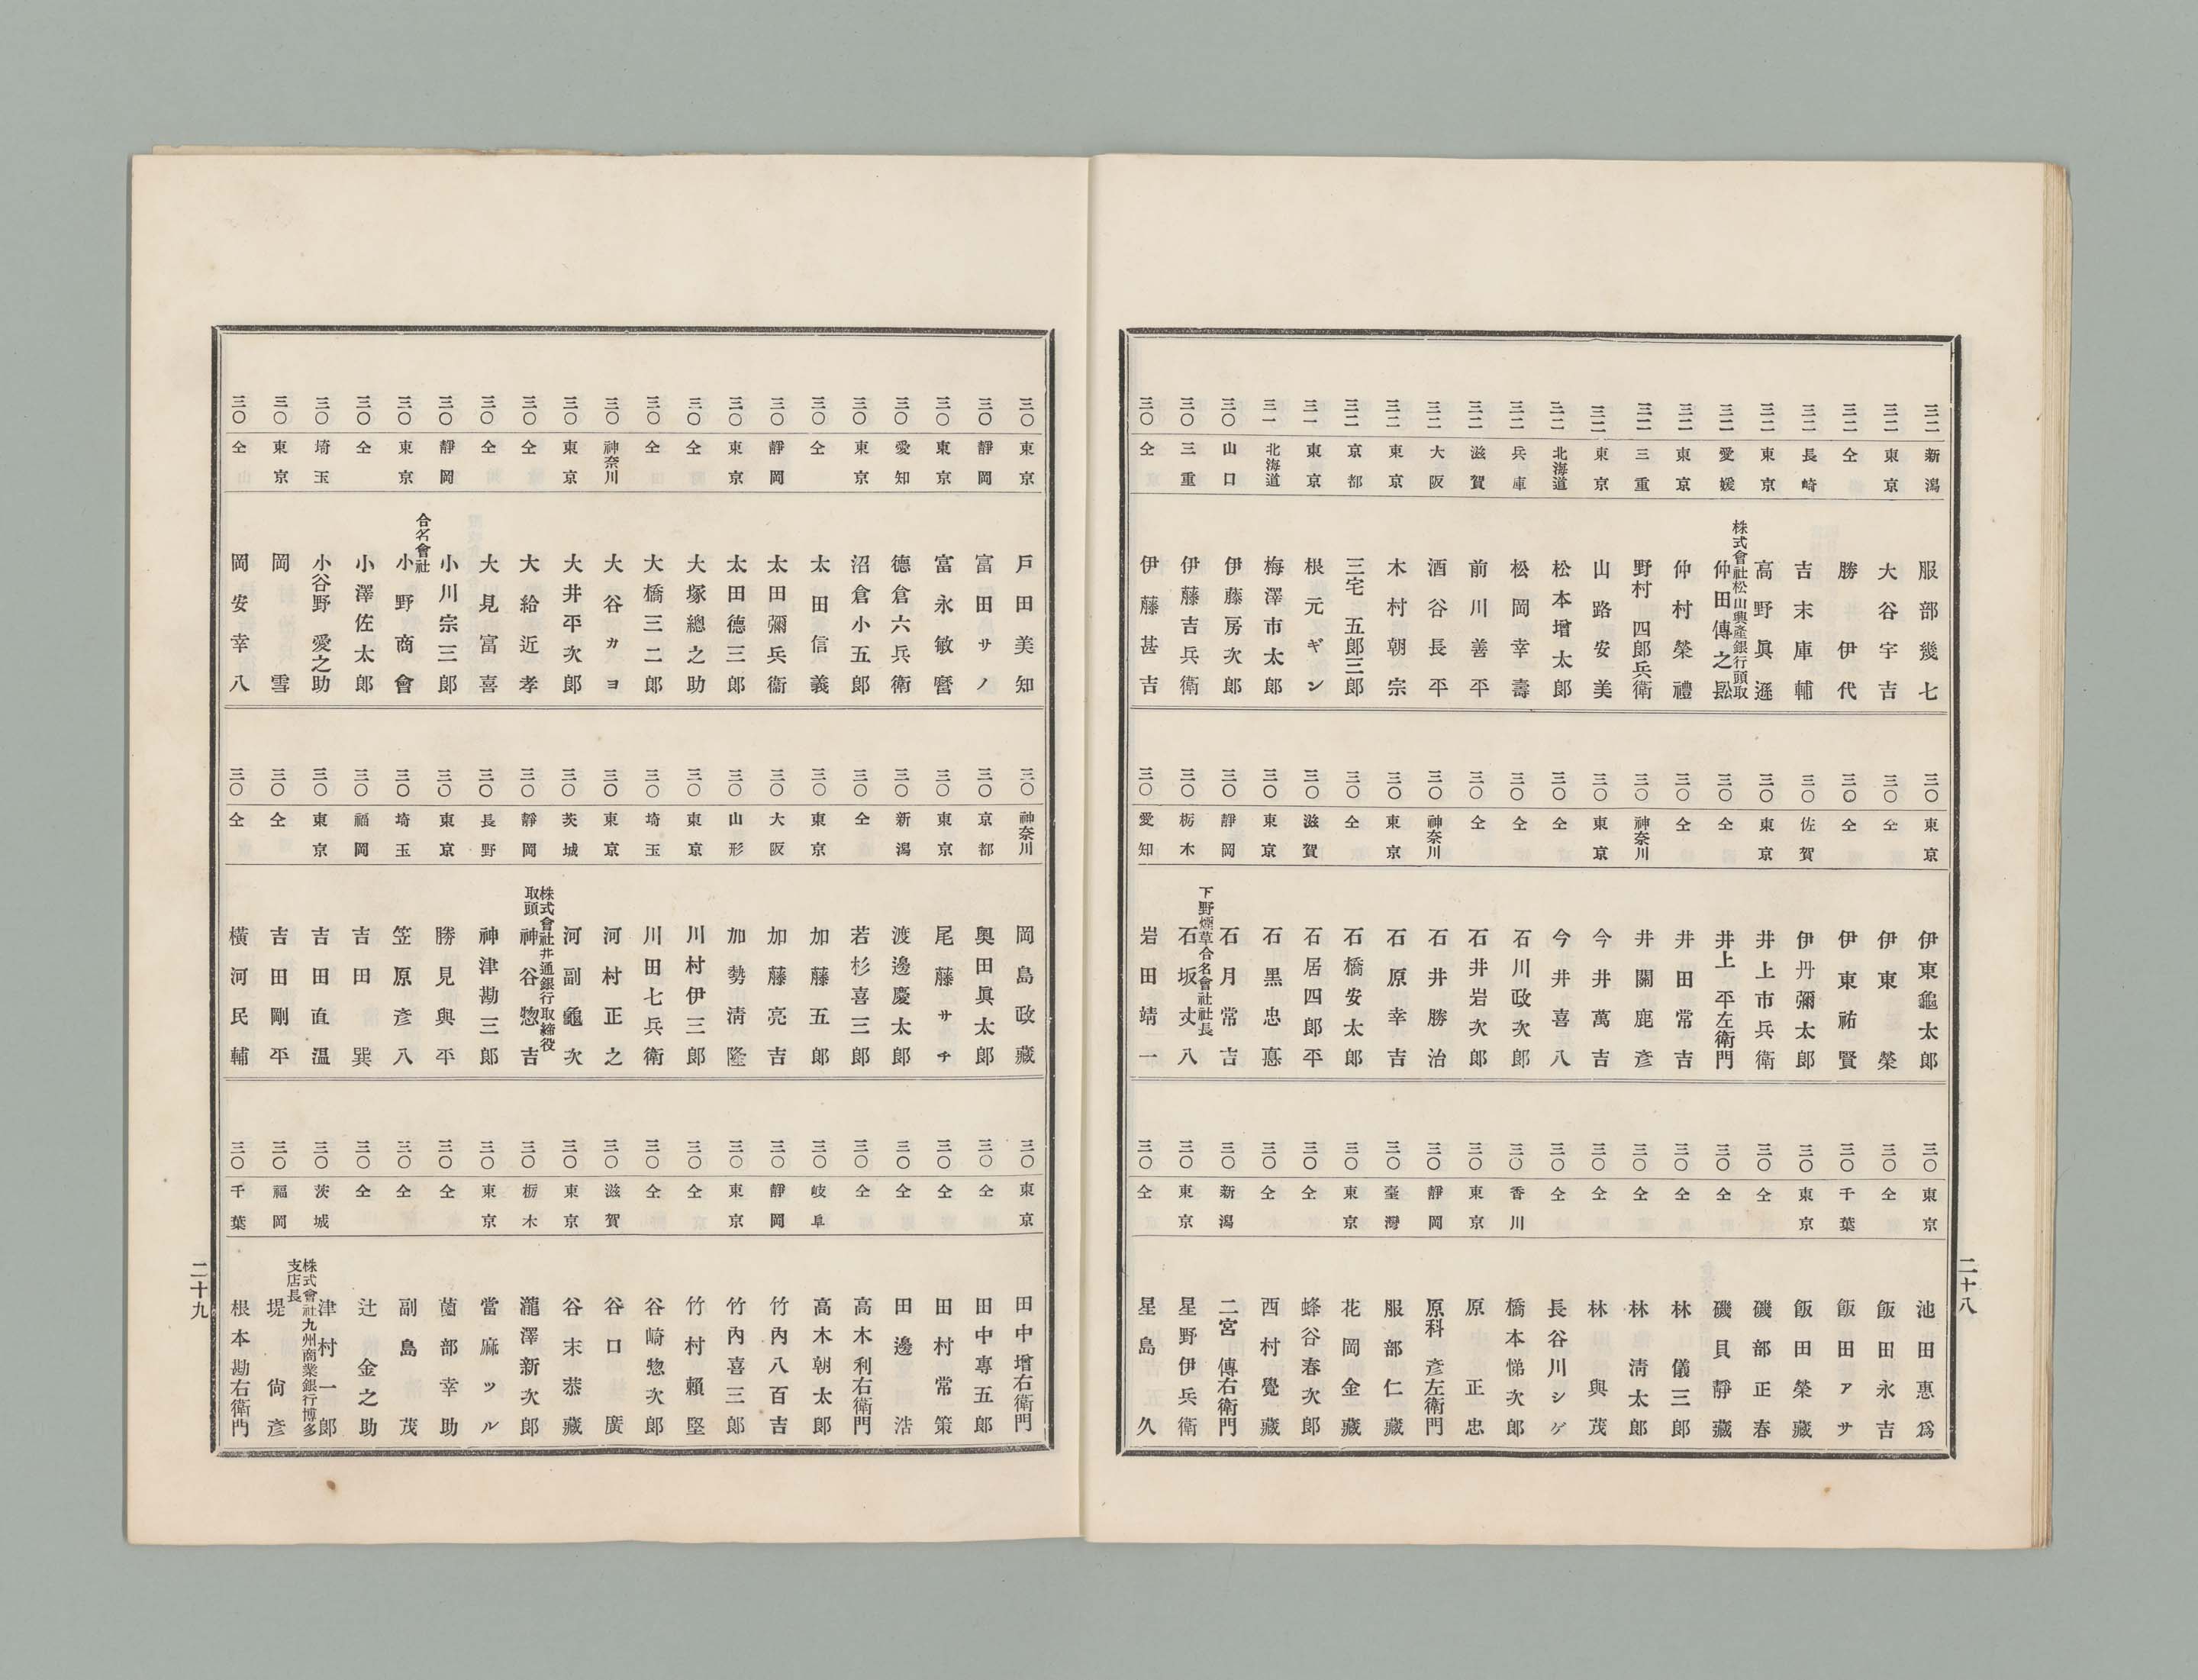 三二 新潟 服部幾七
三二 東京 大谷宇吉
三二 仝 勝伊代
三二 長崎 吉末庫輔
三二 東京 高野眞遜
三二 愛媛 株式會社松山興產銀行頭取 仲田傳之
三二 東京 仲村榮禮
三二 三重 野村四郎兵衛
三二 東京 山路安美
三二 北海道 松本增太郎
三二 兵庫 松岡幸壽
三二 滋賀 前川善平
三二 大阪 酒谷長平
三二 東京 木村朝宗
三二 京都 三宅五郎三郎
三一 東京 根元ギン
三一 北海道 梅澤市太郎
三〇 山口 伊藤房次郎
三〇 三重 伊藤吉兵衛
三〇 仝 伊藤甚吉
三〇 東京 伊東龜太郎
三〇 仝 伊東榮
三〇 仝 伊東祐賢
三〇 佐賀 伊丹彌太郎
三〇 東京 井上市兵衛
三〇 仝 井上平左衛門
三〇 仝 井田常吉
三〇 神奈川 井關鹿彥
三〇 東京 今井萬吉
三〇 仝 今井喜八
三〇 仝 石川政次郎
三〇 仝 石井岩次郎
三〇 神奈川 石井勝治
三〇 東京 石原幸吉
三〇 仝 石橋安太郎
三〇 滋賀 石居四郎平
三〇 東京 石黑忠悳
三〇 靜岡 石月常吉
三〇 栃木 下野煙草合名會社社長 石坂丈八
三〇 愛知 岩田靖一
三〇 東京 池田惠爲
三〇 仝 飯田永吉
三〇 千葉 飯田アサ
三〇 東京 飯田榮藏
三〇 仝 磯部正春
三〇 仝 磯貝靜藏
三〇 仝 林儀三郎
三〇 仝 林淸太郎
三〇 仝 林與茂
三〇 仝 長谷川シゲ
三〇 香川 橋本悌次郎
三〇 東京 原正忠
三〇 靜岡 原科彥左衛門
三〇 臺灣 服部仁藏
三〇 東京 花岡金藏
三〇 仝 蜂谷春次郎
三〇 仝 西村覺藏
三〇 新潟 二宮傳右衛門
三〇 東京 星野伊兵衛
三〇 仝 星島久
二十八
三〇 東京 戶田美知
三〇 靜岡 富田サノ
三〇 東京 富永敏營
三〇 愛知 德倉六兵衛
三〇 東京 沼倉小五郎
三〇 仝 太田信義
三〇 靜岡 太田彌兵衞
三〇 東京 太田德三郎
三〇 仝 大塚總之助
三〇 仝 大橋三二郎
三〇 神奈川 大谷カヨ
三〇 東京 大井平次郎
三〇 仝 大給近孝
三〇 仝 大見富喜
三〇 靜岡 小川宗三郎
三〇 東京 合名會社 小野商會
三〇 仝 小澤佐太郎
三〇 埼玉 小谷野愛之助
三〇 東京 岡雪
三〇 仝 岡安幸八
三〇 神奈川 岡島政藏
三〇 京都 奧田眞太郎
三〇 東京 尾藤サチ
三〇 新潟 渡邊慶太郎
三〇 仝 若杉喜三郎
三〇 東京 加藤五郎
三〇 大阪 加藤亮吉
三〇 山形 加勢淸隆
三〇 東京 川村伊三郎
三〇 埼玉 川田七兵衛
三〇 東京 河村正之
三〇 茨城 河副龜次
三〇 靜岡 株式會社井通銀行取締役取頭 神谷惣吉
三〇 長野 神津勘三郎
三〇 東京 勝見與平
三〇 埼玉 笠原彥八
三〇 福岡 吉田巽
三〇 東京 吉田直溫
三〇 仝 吉田剛平
三〇 仝 橫河民輔
三〇 東京 田中增右衛門
三〇 仝 田中專五郎
三〇 仝 田村常策
三〇 仝 田邊浩
三〇 仝 高木利右衛門
三〇 岐阜 高木朝太郎
三〇 靜岡 竹內八百吉
三〇 東京 竹內喜三郎
三〇 仝 竹村賴堅
三〇 仝 谷崎惣次郎
三〇 滋賀 谷口廣
三〇 東京 谷末恭藏
三〇 栃木 瀧澤新次郎
三〇 東京 當麻ツル
三〇 仝 薗部幸助
三〇 仝 副島茂
三〇 仝 辻金之助
三〇 茨城 津村一郎
三〇 福岡 株式會社九州商業銀行博多支店長 堤尙彥
三〇 千葉 根本勘右衛門
二十九